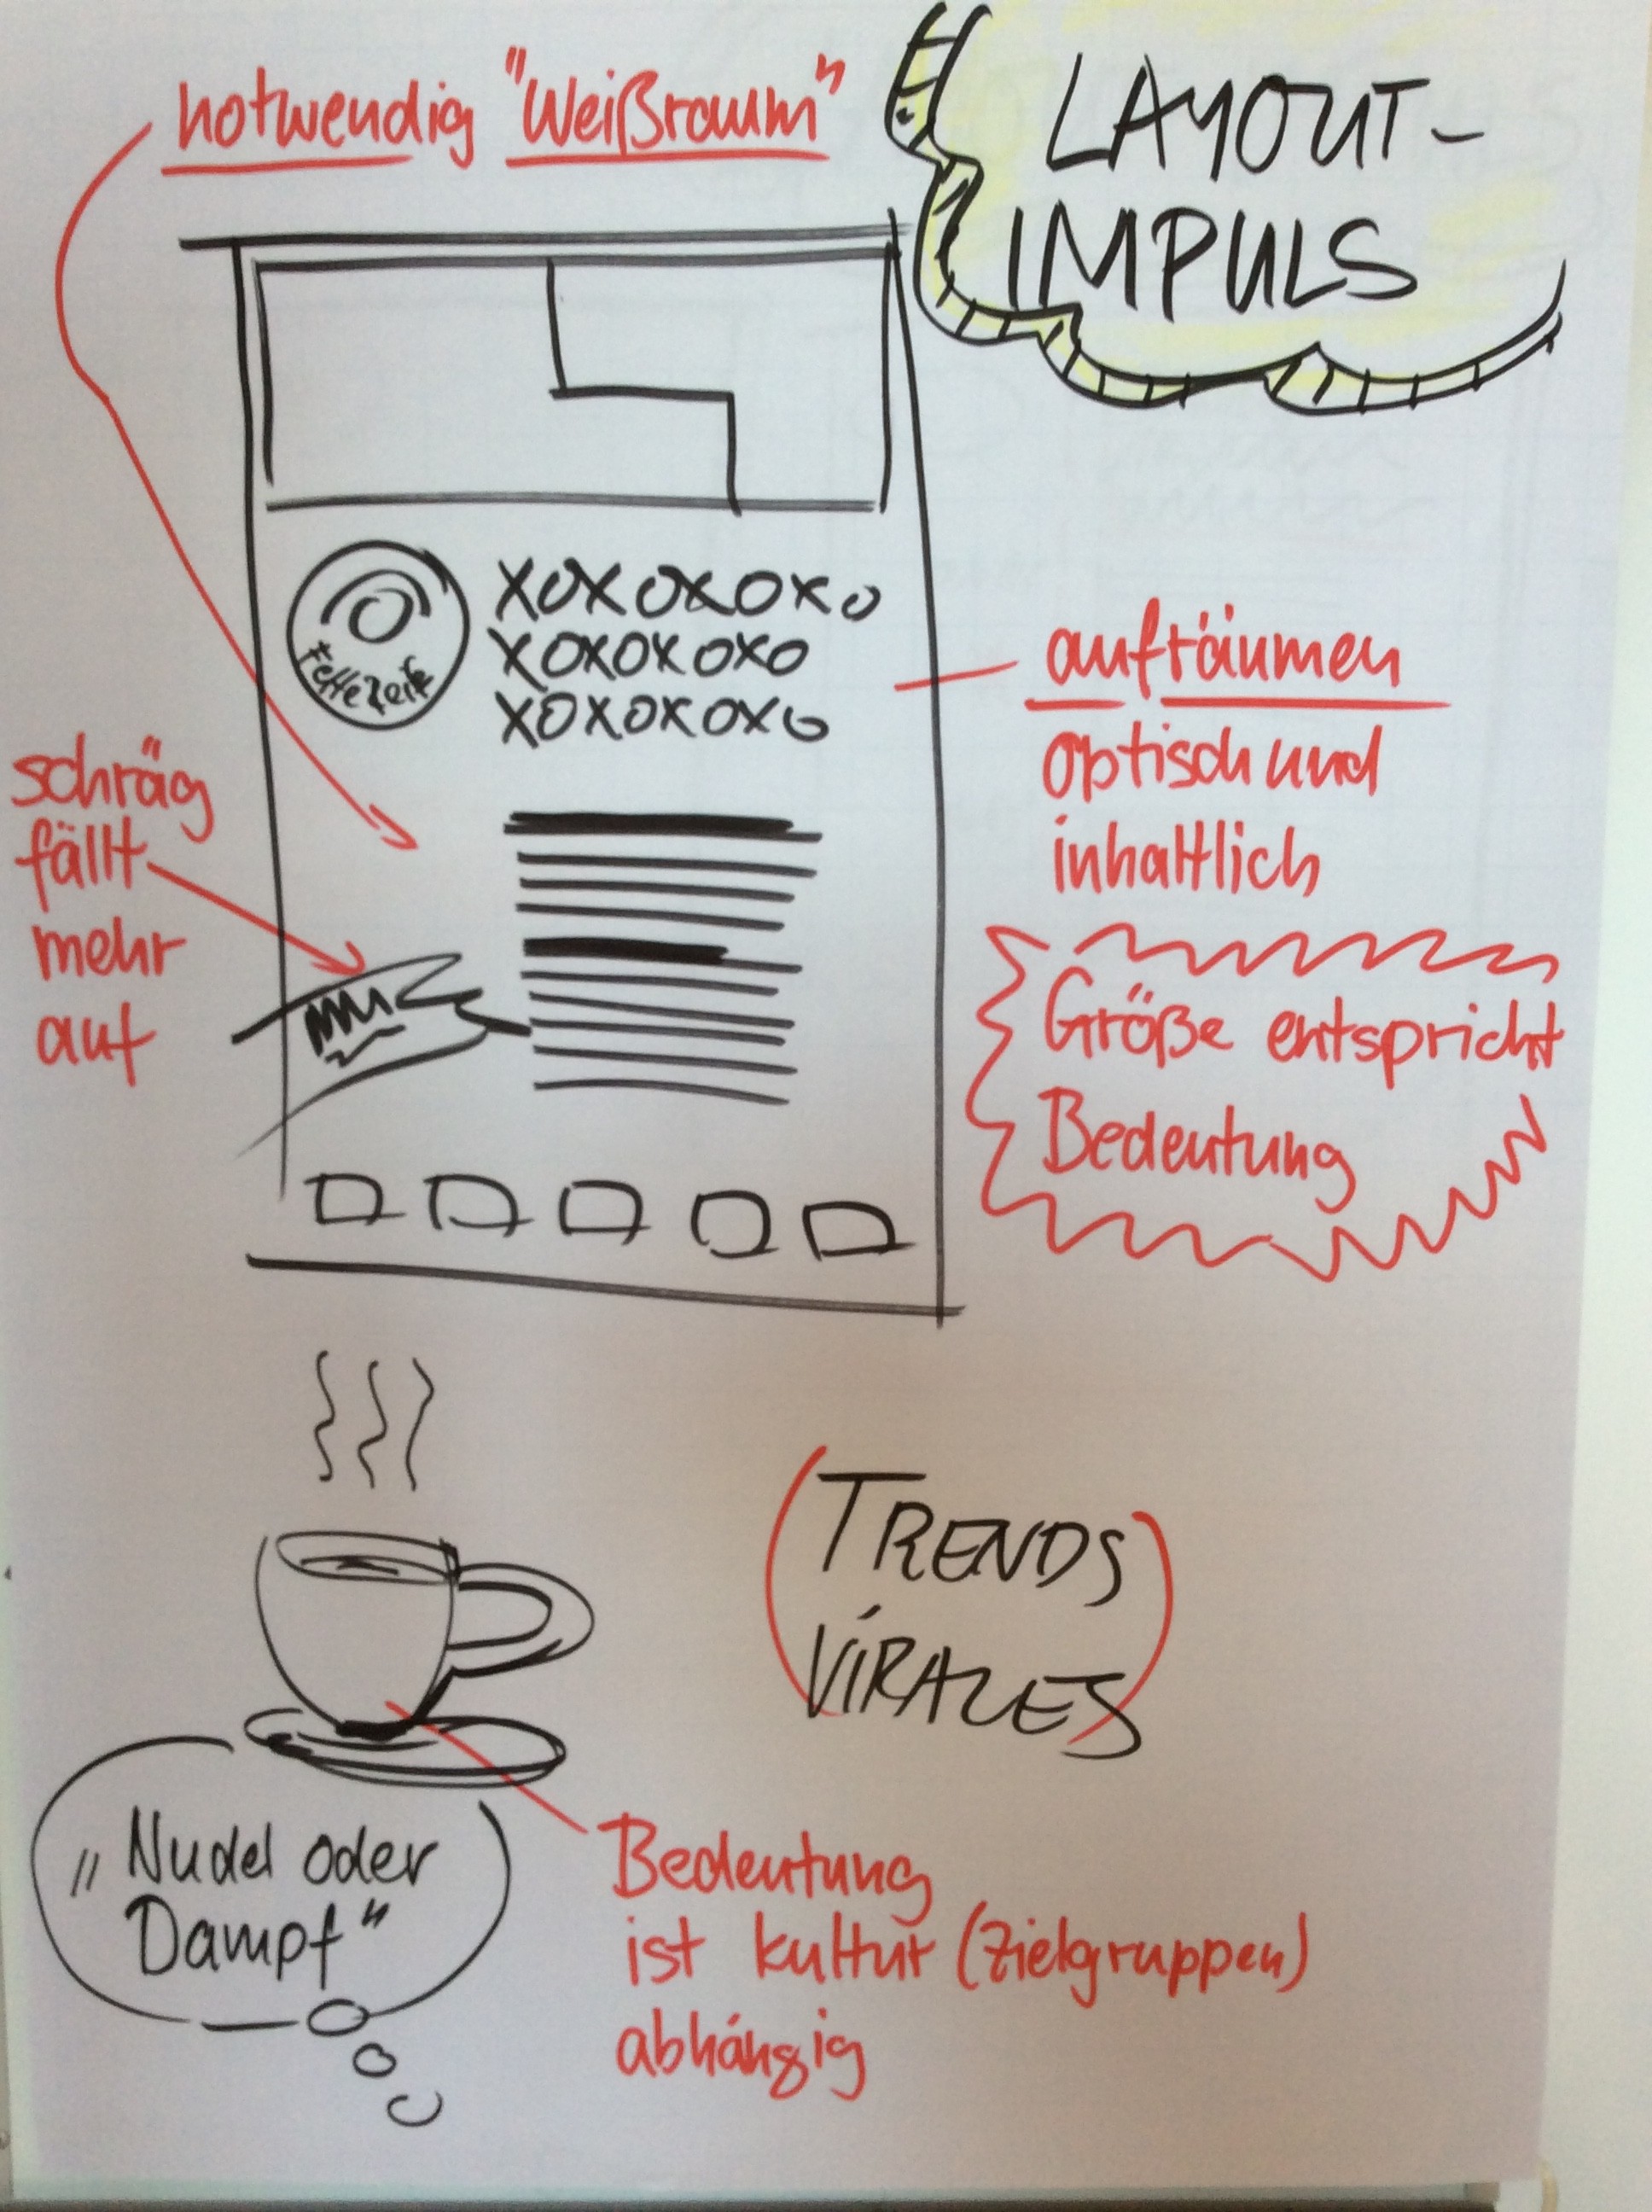 notwendig "Weißraum"
LAYOUT-
IMPULS
Fette Zeile
XOXOXOXO
XOXOXOXO
XOXOXOXO
aufräumen
optisch und
inhaltlich
schräg
fällt
mehr
auf
Größe entspricht
Bedeutung
TRENDS
VIRALES
„Nudel oder
Dampf"
Bedeutung
ist kultur (zielgruppen)
abhängig